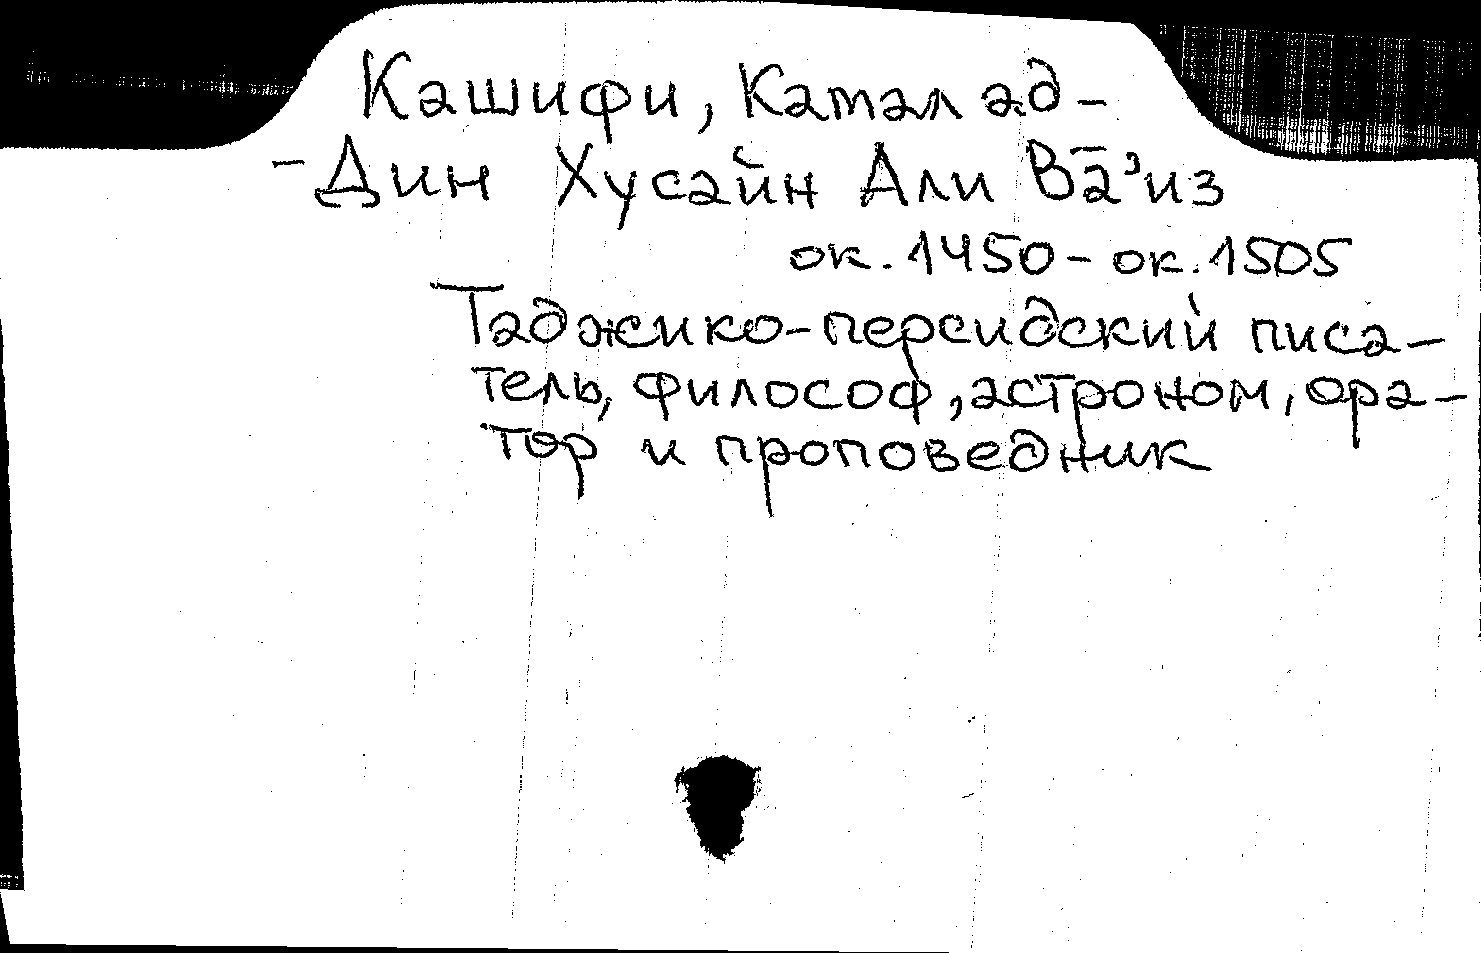 Кашифи, Камал ад-
-Дин Хусайн Али Ва̄’из
ок. 1450 - ок. 1505
Таджико-персидский писа-
тель, философ, астроном, ора-
тор и проповедник